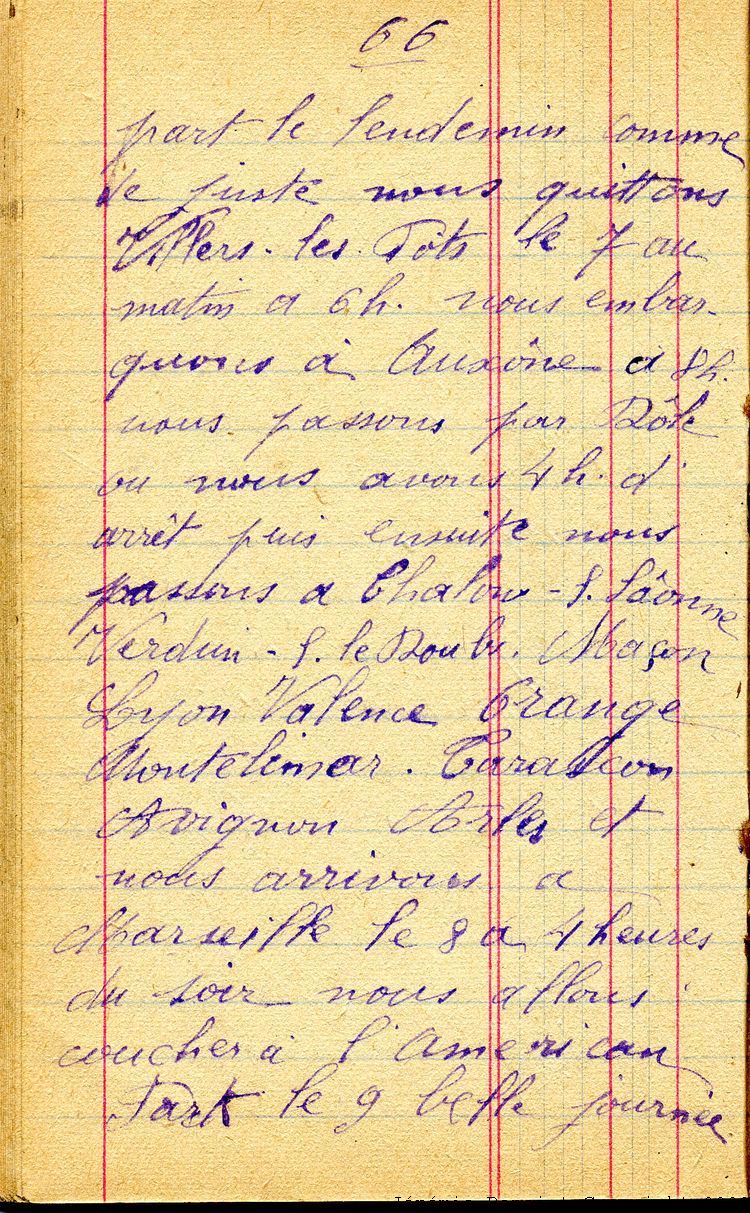 66
part le lendemin comme
de juste nous quittons
Villers-les-Pots le 7 au
matin a 6h. nous embar-
quons à Auxône a 8h.
nous passons par Dôle
ou nous avons 4h. d'
arrêt puis ensuite nous
passons a Chalon-S.Sâonne
Verdun-S.le Doubs. Maçon
Lyon Valence Orange
Montelimar. Tarascon
Avignon Arles et
nous arrivons a
Marseille le 8 a 4 heures
du soir nous allons
coucher a l'American
Park le 9 belle journée